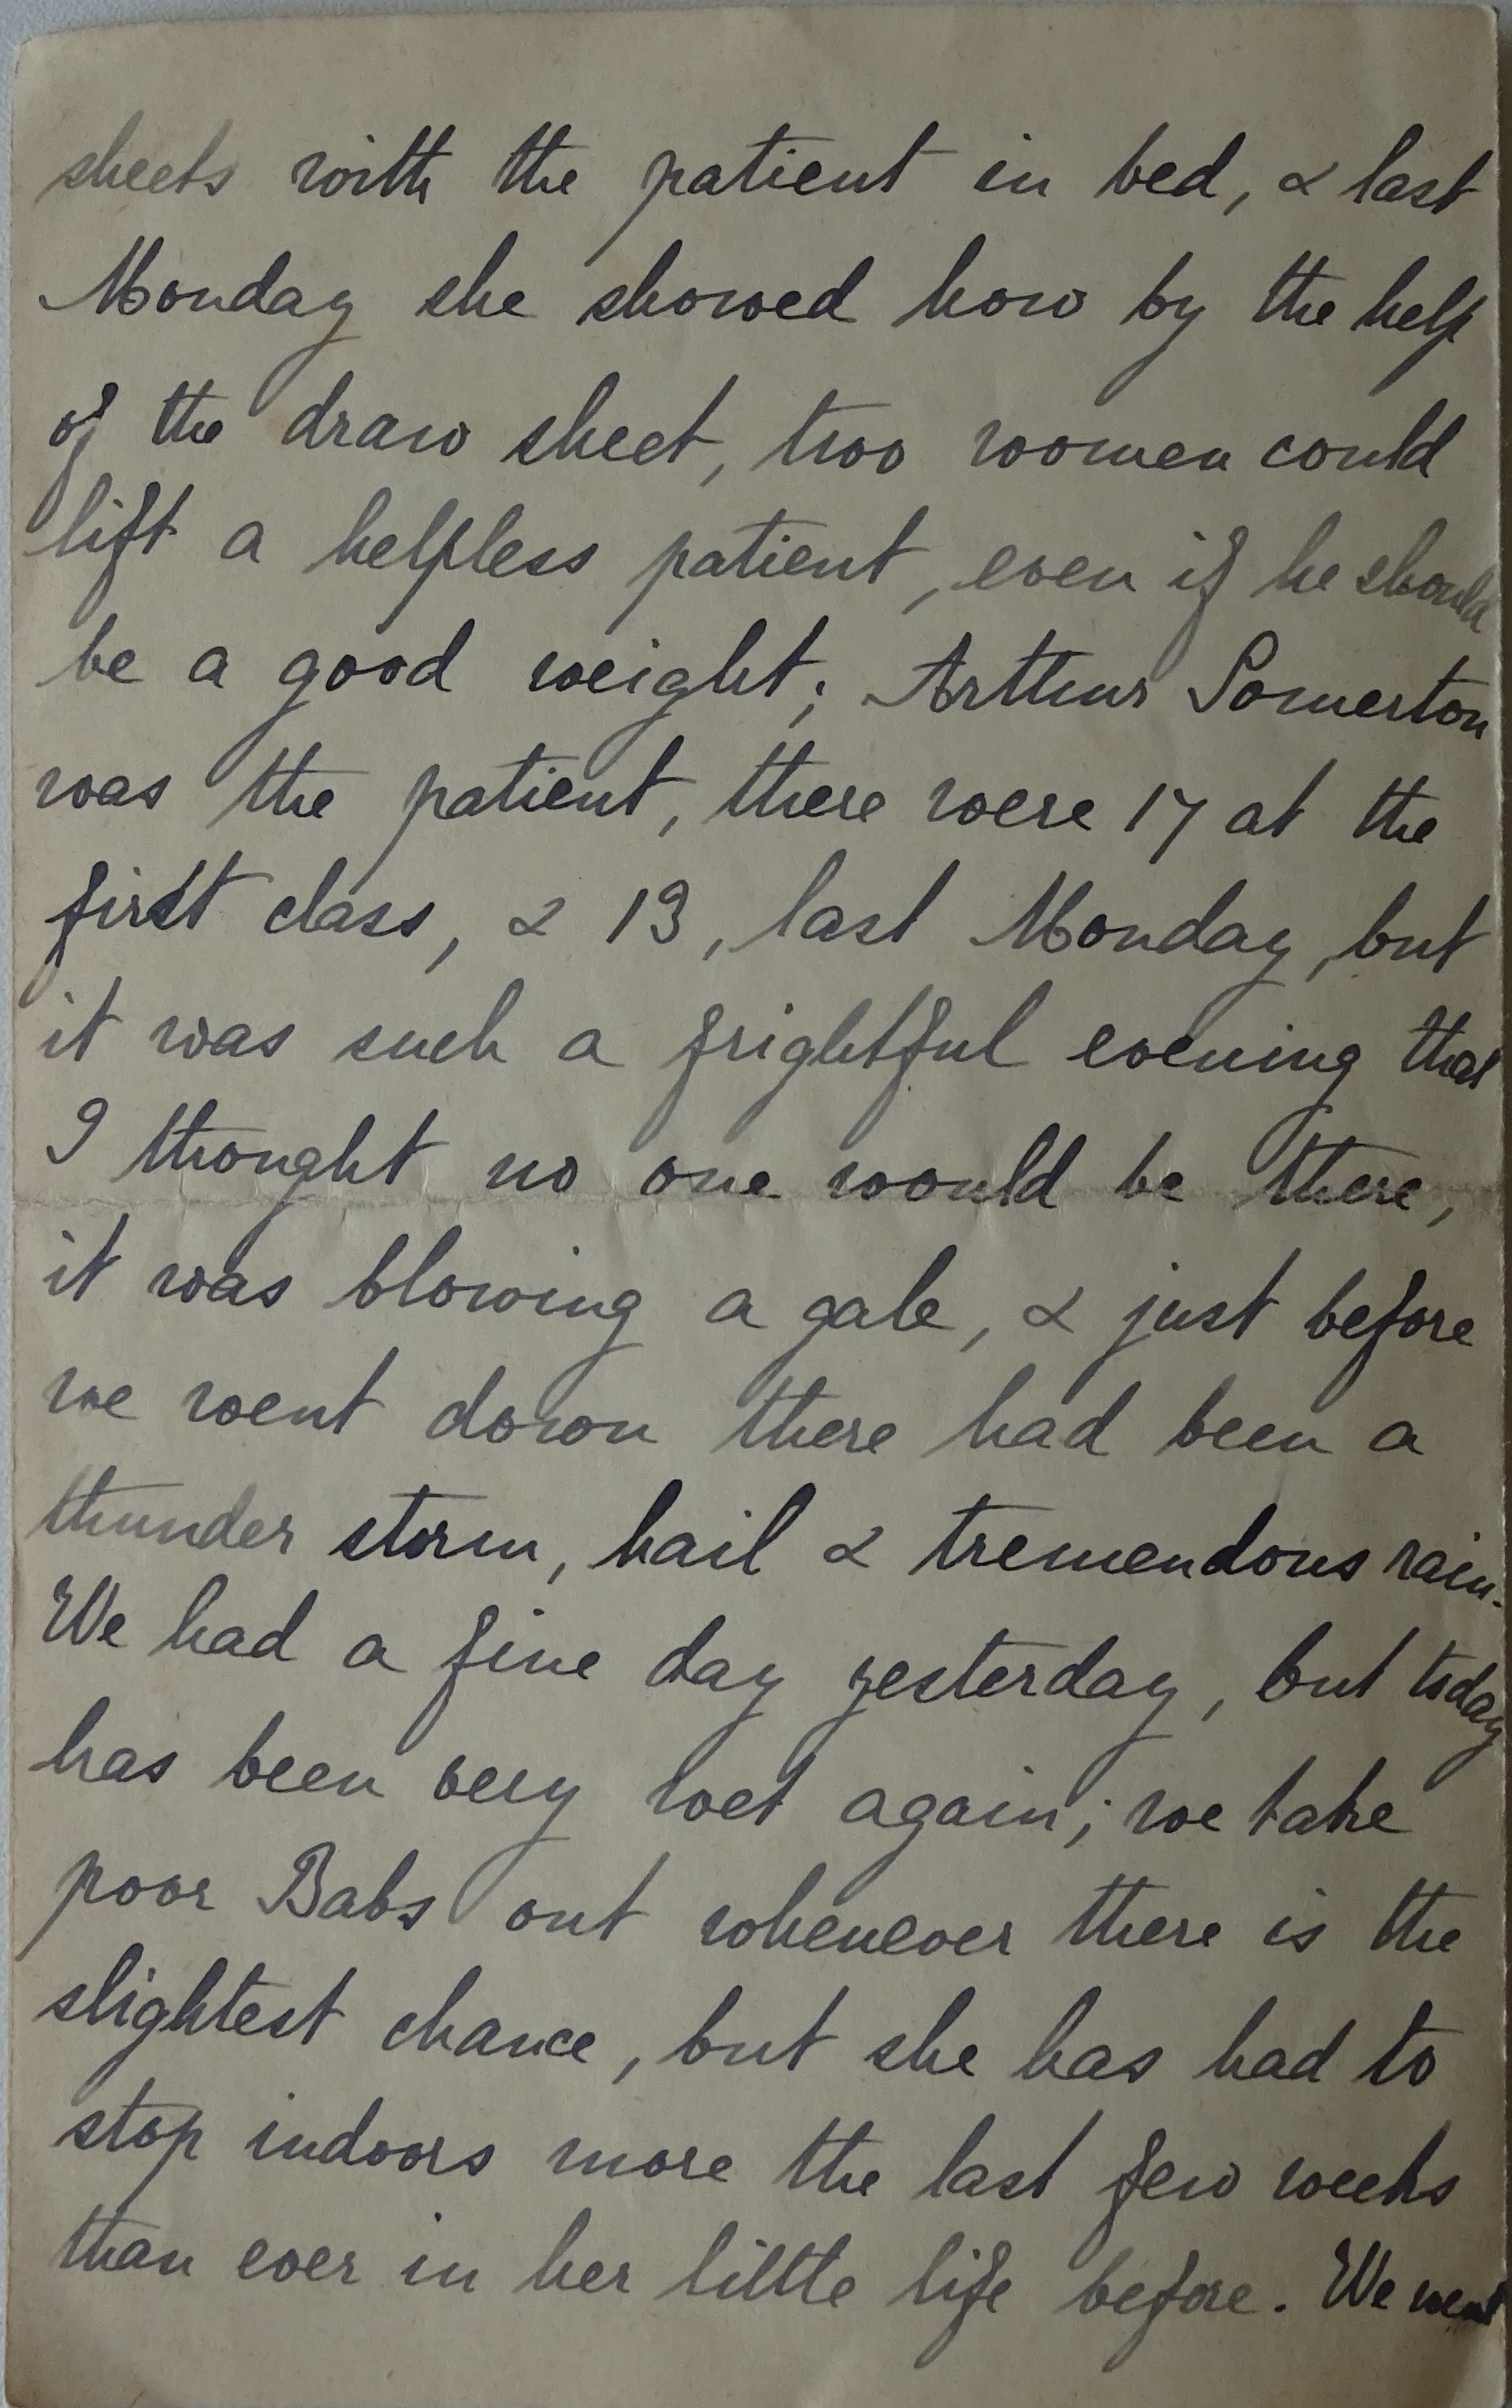 sheets with the patient in bed, & last
Monday she showed how by the help
of the draw sheet, two women could
lift a helpless patient, even if he should
be a good weight; Arthur Somerton
was the patient, there were 17 at the
first class, & 13, last Monday, but
it was such a frightful evening that
I thought no one would be there,
it was blowing a gale, & just before
we went down there had been a
thunder storm, hail & tremendous rain.
We had a fine day yesterday, but today
has been very wet again; we take
poor Babs out whenever there is the
slightest chance, but she has had to
stop indoors more the last few weeks
than ever in her little life before. We went